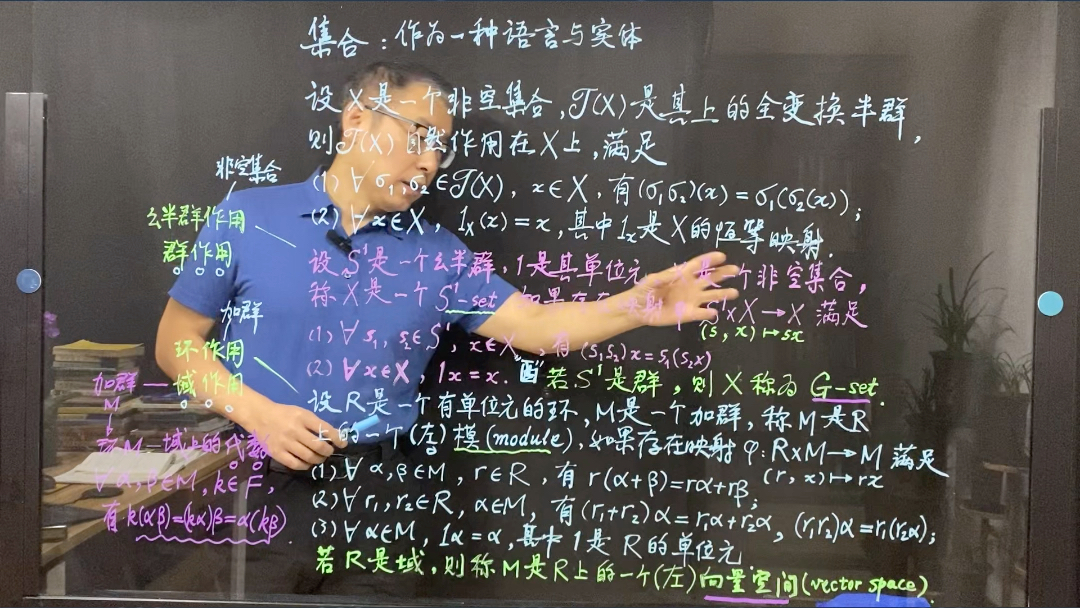 集合：作为一种语言与实体
设X是一个非空集合,𝒯(X)是其上的全变换半群,
则𝒯(X)自然作用在X上,满足
(1) ∀σ₁,σ₂∈𝒯(X), x∈X, 有(σ₁σ₂)(x)=σ₁(σ₂(x));
(2) ∀x∈X, 1ₓ(x)=x,其中1ₓ是X的恒等映射.
设S¹是一个幺半群,1是其单位元 是一个非空集合,
称X是一个S¹-set 如果存在映射 S¹×X→X 满足
(s, x)↦sx
(1) ∀s₁, s₂∈S¹, x∈X, 有(s₁s₂)x=s₁(s₂x)
(2) ∀x∈X, 1x=x. 若S¹是群,则X称为G-set.
设R是一个有单位元的环,M是一个加群,称M是R
上的一个(左)模(module),如果存在映射φ:R×M→M 满足
(r, x)↦rx
(1) ∀α,β∈M, r∈R, 有r(α+β)=rα+rβ;
(2) ∀r₁,r₂∈R, α∈M, 有(r₁+r₂)α=r₁α+r₂α, (r₁r₂)α=r₁(r₂α);
(3) ∀α∈M, 1α=α,其中1是R的单位元
若R是域,则称M是R上的一个(左)向量空间(vector space).
非空集合
幺半群作用
群作用
加群
环作用
加群—域作用
M
M—域上的代数
∀α,β∈M, k∈F,
有k(αβ)=(kα)β=α(kβ).